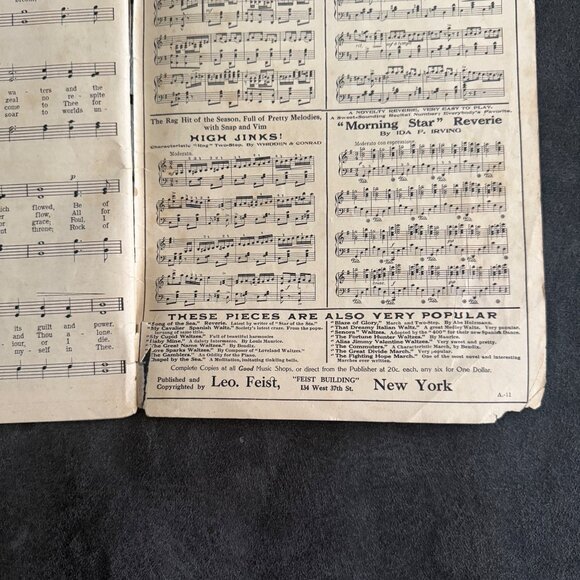 wa - ters and the
zeal no re - spite
come to Thee for
soar to worlds un -
p
flowed, He of
flow, All for
grace; Foul, I
throne; Rock of
its guilt and power.
and Thou a - lone.
iour, or I die.
my - self in Thee.
The Rag Hit of the Season, Full of Pretty Melodies,
with Snap and Vim
HIGH JINKS!
Characteristic "Rag" Two-Step. By WHIDDEN & CONRAD
Moderato.
A NOVELTY REVERIE, VERY EASY TO PLAY,
A Sweet-Sounding Recital Number; Everybody's Favorite.
"Morning Star" Reverie
By IDA F. IRVING
Moderato con espressione
THESE PIECES ARE ALSO VERY POPULAR
"Song of the Sea." Reverie. Latest by writer of "Star of the Sea."
"My Cavalier Spanish Waltz." latest craze. From the
song of same title.
"My Cupid Waltzes." Full of love and passion.
A dainty Intermezzo. By Louis Maurice.
"The Great Name Waltzes." By Bendix.
Waltzes." By composer of "Loveland Waltzes."
"The Gamblers." An Oddity for the Piano.
"Chapel by the Sea." A Meditation, imitating tinkling bells.
"Blaze of Glory." March and Two-Step. By Abe Holzmann.
"That Dreamy Italian Waltz." A great Medley Waltz. Very popular.
"Senora" Waltzes. Adopted by the "400" for their new Spanish Dance.
"The Fortune Hunter Waltzes." By Maurice.
"Alias Jimmy Valentine Waltzes." Very sweet and pretty.
"The Commuters." A Characteristic March, by Bendix.
"The Great Divide March." Very popular.
"The Fighting Hope March." One of the most novel and interesting
Marches ever written.
Complete Copies at all Good Music Shops, or direct from the Publisher at 20c. each, any six for One Dollar.
Published and
Copyrighted by
Leo. Feist,
"FEIST BUILDING"
134 West 37th St.
New York
A.-11